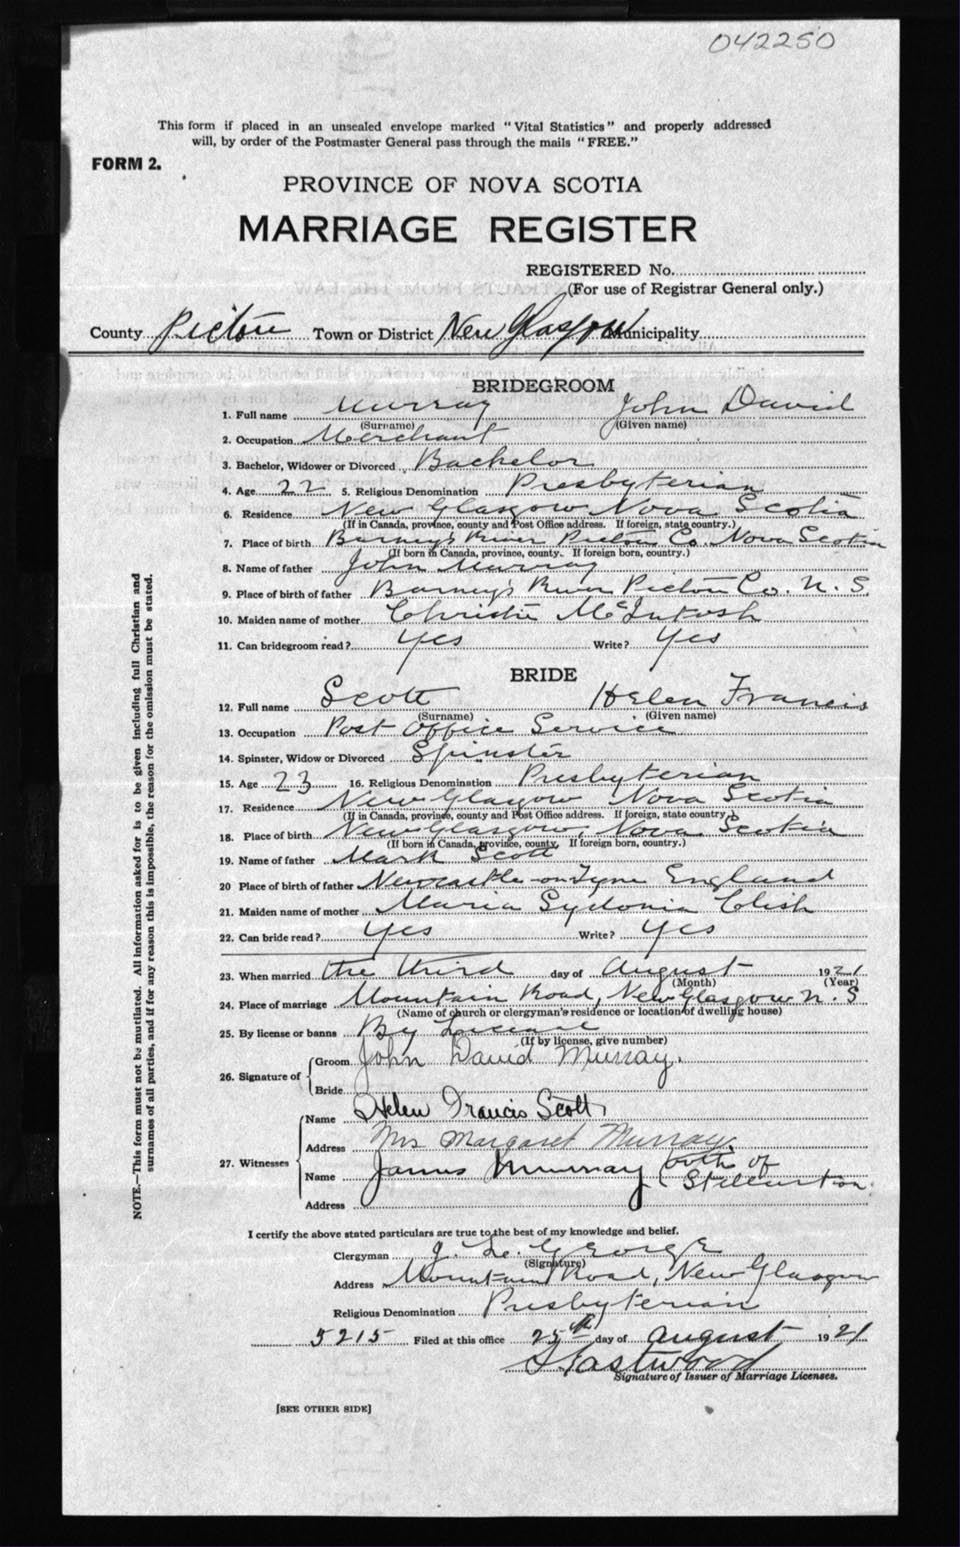 042250
This form if placed in an unsealed envelope marked "Vital Statistics" and properly addressed
will, by order of the Postmaster General pass through the mails "FREE."
FORM 2.
PROVINCE OF NOVA SCOTIA
MARRIAGE REGISTER
REGISTERED No.
(For use of Registrar General only.)
County Pictou Town or District New Glasgow Municipality
BRIDEGROOM
1. Full name Murray John David
(Surname) (Given name)
2. Occupation Merchant
3. Bachelor, Widower or Divorced Bachelor
4. Age 22 5. Religious Denomination Presbyterian
6. Residence New Glasgow Nova Scotia
(If in Canada, province, county and Post Office address. If foreign, state country.)
7. Place of birth Barney's River Pictou Co. Nova Scotia
(If born in Canada, province, county. If foreign born, country.)
8. Name of father John Murray
9. Place of birth of father Barney's River Pictou Co. N. S.
10. Maiden name of mother Christie McIntosh
11. Can bridegroom read? Yes Write? Yes
BRIDE
12. Full name Scott Helen Francis
(Surname) (Given name)
13. Occupation Post Office Service
14. Spinster, Widow or Divorced Spinster
15. Age 23 16. Religious Denomination Presbyterian
17. Residence New Glasgow Nova Scotia
(If in Canada, province, county and Post Office address. If foreign, state country
18. Place of birth New Glasgow, Nova Scotia
(If born in Canada, province, county, If foreign born, country.)
19. Name of father Mark Scott
20 Place of birth of father Newcastle-on-Tyne England
21. Maiden name of mother Maria Sydonia Clish
22. Can bride read? Yes Write? Yes
23. When married the third day of August 1921
(Month) (Year)
24. Place of marriage Mountain Road, New Glasgow N. S
(Name of church or clergyman's residence or location of dwelling house)
25. By license or banns By License
(If by license, give number)
26. Signature of Groom John David Murray.
Bride
27. Witnesses Name Helen Francis Scott
Address Mrs Margaret Murray
Name James Murray both of
Stellarton.
Address
I certify the above stated particulars are true to the best of my knowledge and belief.
Clergyman J. L. George
(Signature)
Address Mountain Road, New Glasgow
Religious Denomination Presbyterian
5215 Filed at this office 25th day of August 1921
Eastwood
Signature of Issuer of Marriage Licenses.
[SEE OTHER SIDE]
NOTE.—This form must not be mutilated. All information asked for is to be given including full Christian and
surnames of all parties, and if for any reason this is impossible, the reason for the omission must be stated.